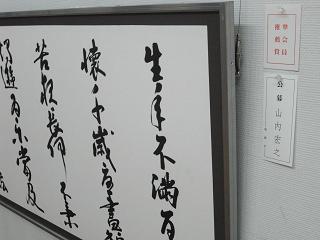 生年不満百
懷千歳憂晝短
苦夜長何不秉
燭遊為樂當及
準会員
推薦賞
公募
山内宏之